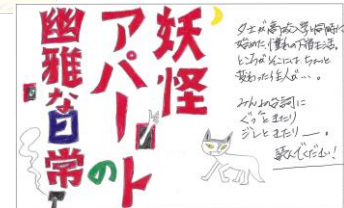 妖怪
アパートの
幽雅な日常
夕士が高校入学と同時に
始めた、憧れの下宿生活。
ところがそこには、ちょっと
変わった住人が…。
みんなの会話に
ぐっときたり
ジンときたり―。
読んでください!